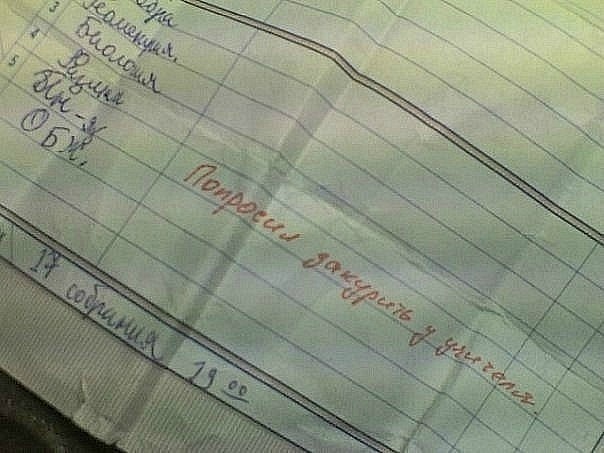 3 Геометрия.
4 Биология
5 Физика
Ин-яз
ОБЖ.
Попросил закурить у учителя.
17 собрания 19 00